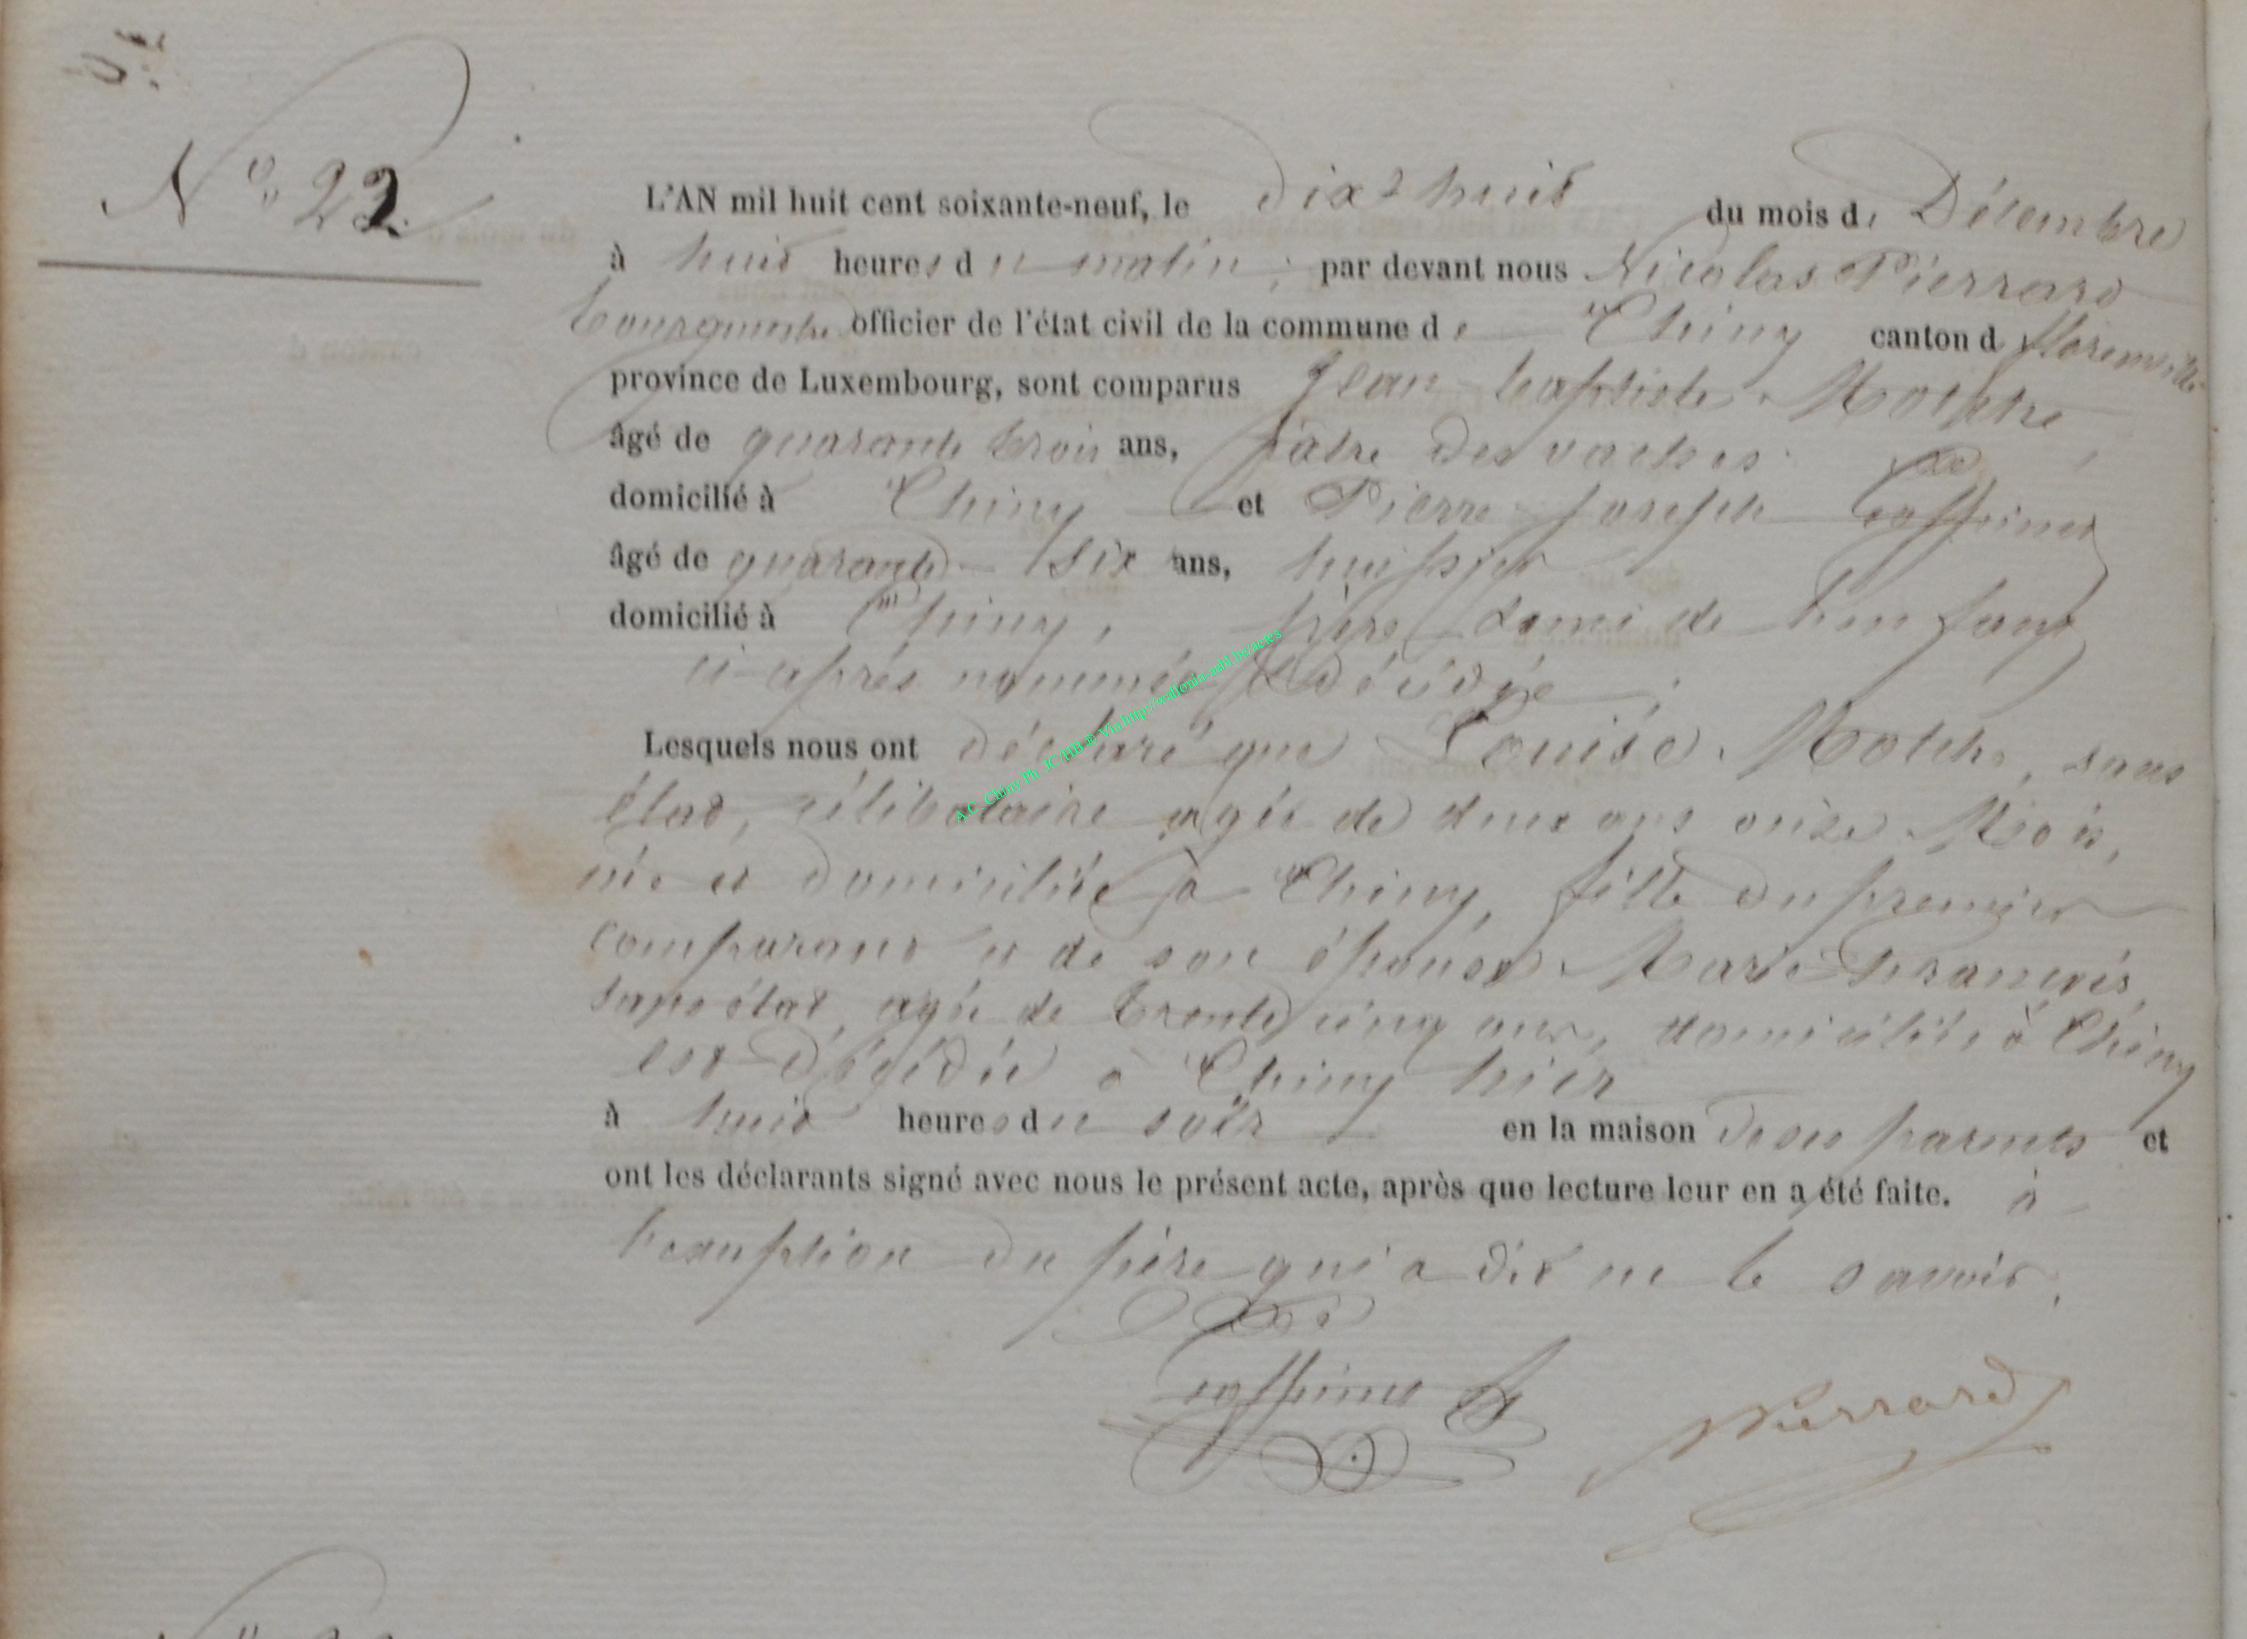 N° 22.
L'AN mil huit cent soixante-neuf, le dix-huit du mois de Décembre
à huit heures du matin, par devant nous Nicolas Pierrard
bourgmestre officier de l'état civil de la commune de Chiny canton d florenville
province de Luxembourg, sont comparus Jean baptiste
âgé de quarante trois ans, pâtre des vaches
domicilié à Chiny et Pierre joseph
âgé de quarante-six ans, huissier
domicilié à Chiny, père & ami de l'enfant
ci-après nommée & décédée ;
Lesquels nous ont déclaré que Louise, sans
état, célibataire agée de deux ans onze Mois,
née et domiciliée à Chiny, fille du premier
comparant et de son épouse Marie,
sans état, agée de trente cinq ans, domiciliée à Chiny
est décédée à Chiny hier
à huit heures du soir en la maison de ses parents et
ont les déclarants signé avec nous le présent acte, après que lecture leur en a été faite. à
l'exception du père qui a dit ne le savoir.
Pierrard
A.C. Chiny Ph. JC/JJB © Via http://wallonia-asbl.be/actes